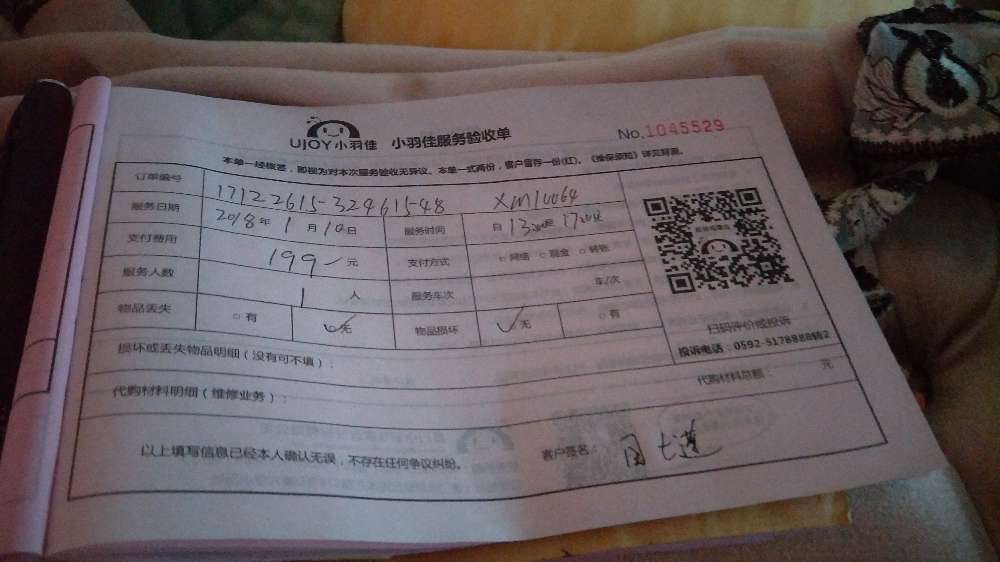 UJOY小羽佳 小羽佳服务验收单 No.1045529
本单一经核签，即视为对本次服务验收无异议。本单一式两份，客户留存一份(红)。《维保须知》详见背面。
订单编号 17122615-32461548 XM10064
服务日期 2018年 1月 10日 服务时间 自 13:00至 17:00止
支付费用 199 元 支付方式 □ 网络 □ 现金 □ 转账
服务人数 1 人 服务车次 车/次
物品丢失 □ 有 ☑无 物品损坏 ✓无 □ 有
损坏或丢失物品明细（没有可不填）：
代购材料明细（维修业务）： 代购材料总额： 元
扫码评价或投诉
投诉电话：0592-5178888转2
以上填写信息已经本人确认无误，不存在任何争议纠纷。 客户签名：